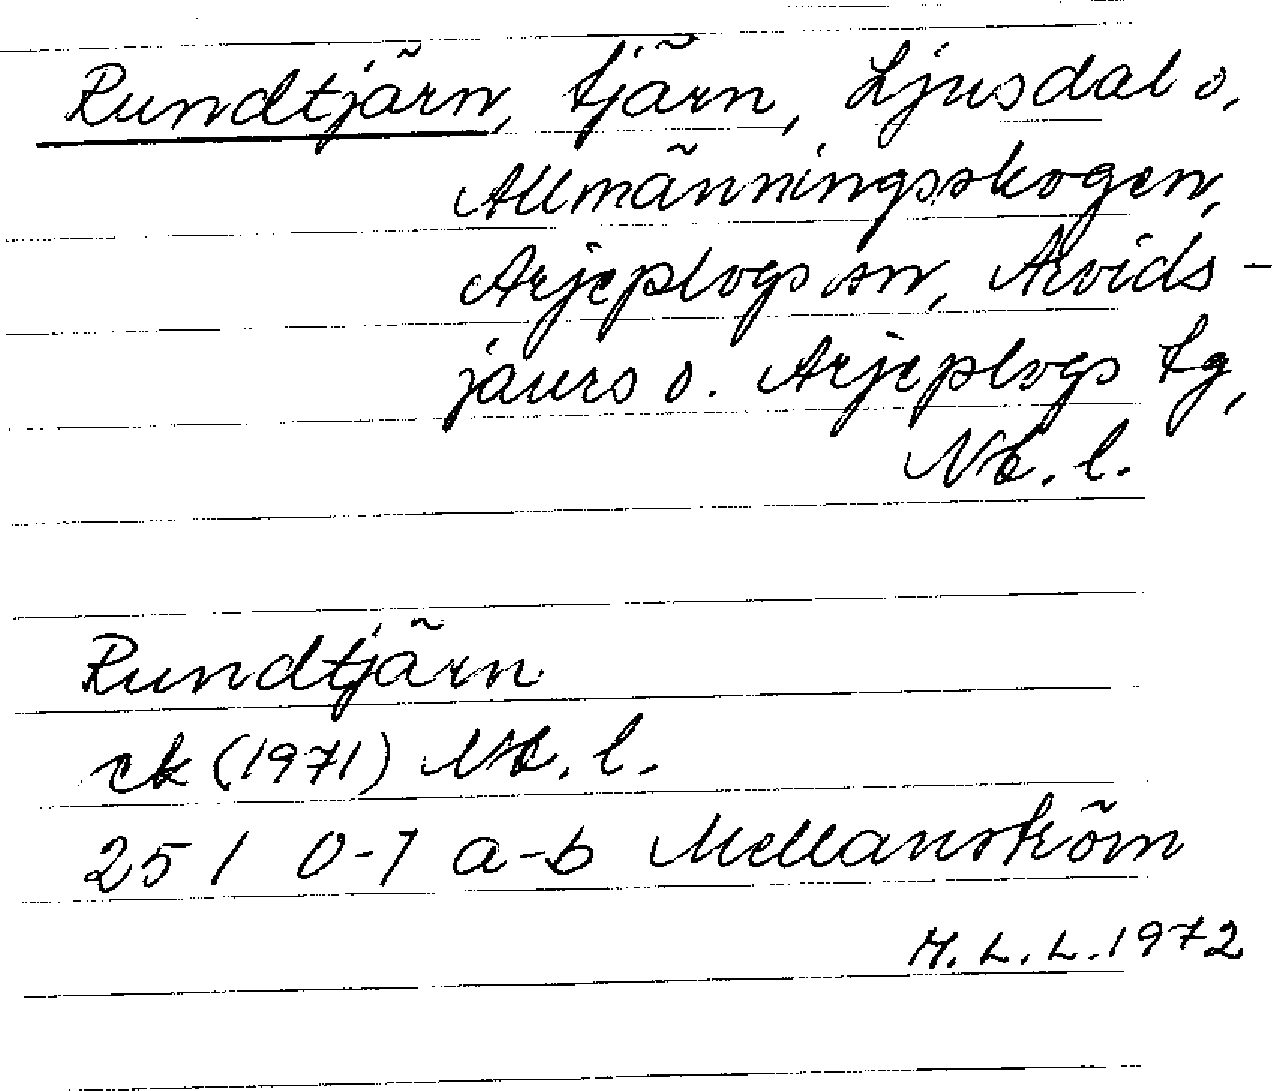 Rundtjärn, tjärn, Ljusdal o.
Allmänningsskogen,
Arjeplogs sn, Arvids-
jaurs o. Arjeplogs tg,
Nb. l.
Rundtjärn
ek (1971) Nb. l.
25 I 0-1 a-b Mellanström
M. L. L. 1972